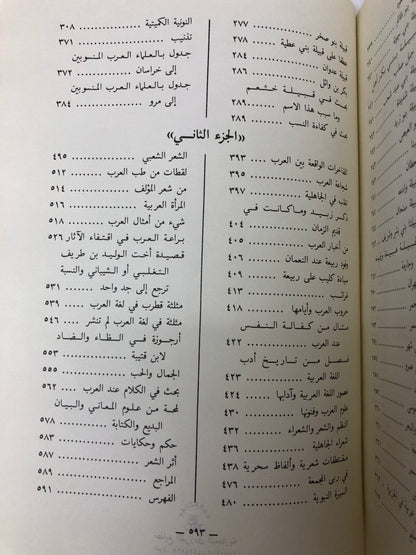 قبيلة بنو صخر ٢٧٧
قبيلة بني عطية ٢٧٨
قبيلة عدوان ٢٨٤
بكر بن وائل ٢٨٦
بحث في قبيلة خثعم
وما سبب هذا الاسم ٢٨٩
بحث في كفاءة النسب ٢٨٩
النونية الكميتية ٣٠٨
تلنيب ٣٧١
جدول بالعلماء العرب المنسوبين
إلى خراسان ٣٧٢
جدول بالعلماء العرب المنسوبين
إلى مرو ٣٨٤
«الجزء الثاني»
المفاخرات الواقعة بين العرب ٣٩٣
شجاعة العرب ٣٩٥
تلب في الجاهلية ٣٩٧
ذكر زبيد وما كانت في
قديم الزمان ٤٠٤
من أخبار العرب ٤٠٥
وفود ربيعة عند النعمان ٤٠٦
سيادة كليب على ربيعة ٤٠٩
غرائب ٤١٣
حروب العرب وأيامها ٤١٨
مثال من كفالة النفس
عند العرب ٤٢٢
فصل من تاريخ أدب
اللغة العربية ٤٢٣
عصور اللغة العربية وآدابها ٤٢٤
علوم العرب وفنونها ٤٢٦
النظم والشعر والشعراء ٤٣٢
شعراء الجاهلية ٤٣٦
مقتطفات شعرية وألفاظ سحرية ٤٣٨
في ربى المجمعة ٤٧٦
السيرة النبوية ٤٨٠
الشعر الشعبي ٤٩٥
لقطات من طب العرب ٥١٢
من شعر المؤلف ٥١٤
المرأة العربية ٥١٦
شيء من أمثال العرب ٥١٨
براعة العرب في اقتفاء الآثار ٥٢٦
قصيدة أخت الوليد بن طريف
التغلبي أو الشيباني والنسبة
ترجع إلى جد واحد ٥٣١
مثلثة قطرب في لغة العرب ٥٣٩
مثلثة في لغة العرب لم تنشر ٥٤٦
أرجوزة في الظاء والضاد
لابن قتيبة ٥٥٣
الجمال والحب ٥٥٥
بحث في الكلام عند العرب ٥٦٢
لمحة من علوم المعاني والبيان
البديع والكتابة ٥٧٨
حكم وحكايات ٥٨٣
أثر الشعر ٥٨٧
المراجع ٥٨٩
الفهرس ٥٩١
— ٥٩٣ —